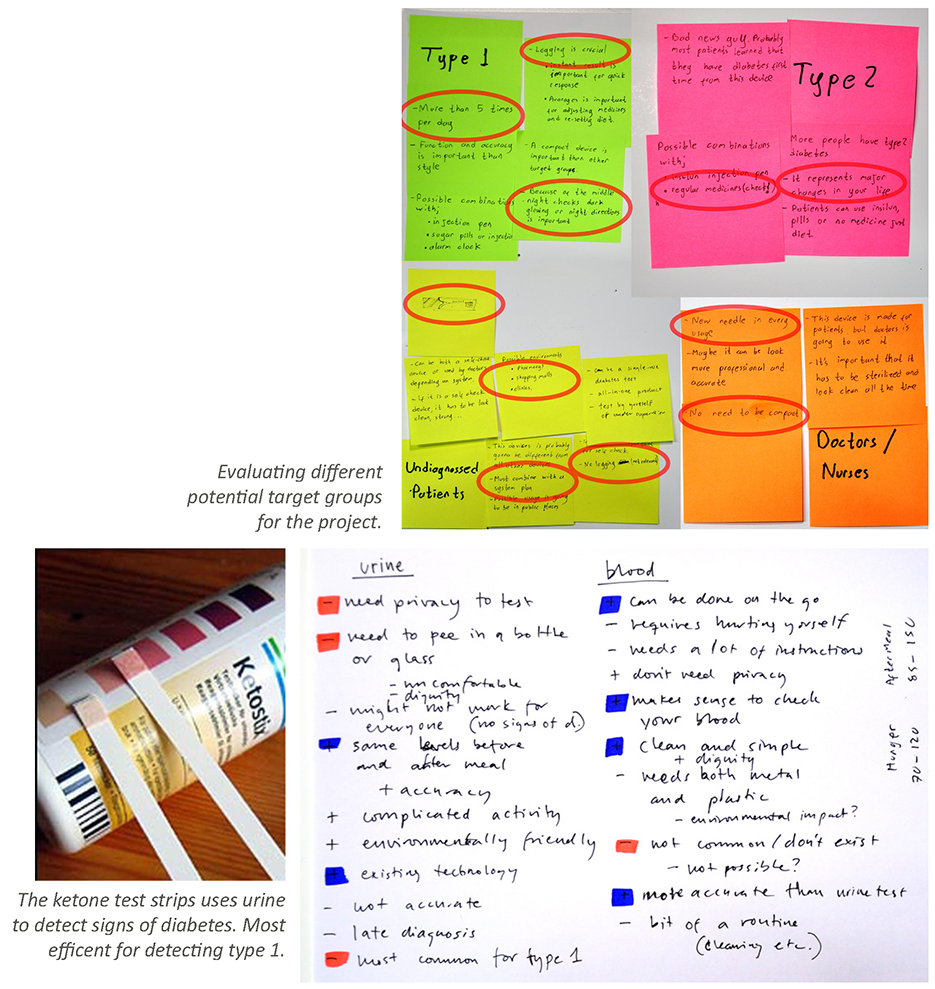 Type 1
- More than 5 times
per day
- Function and accuracy
is important than
style
- Possible combinations
with;
• injection pen
• sugar pills or injection
• alarm clock
- Logging is crucial
• instant result is
important for quick
response
• Averages is important
for adjusting medicines
and re-setting diet.
- A compact device is
important than other
target groups.
- Because of the middle
night checks dark
glowing or night directions
is important
- Bad news guy. Probably
most patients learned that
they have diabetes first
time from this device
Type 2
Possible combinations
with;
• insulin injection pen
• regular medicines
- More people have type 2
diabetes
- It represents major
changes in your life
- Patients can use insilun,
pills or no medicine just
diet.
- Can be both a self-check
device or used by doctors
depending on system.
- If it is a self check
device, it has to be look
clean, strong...
Possible environments
• pharmacy
• shopping malls
• clinics
- can be a single-use
diabetes test
- all-in-one product
- test by yourself
or under supervision
Undiagnossed
Patients
- This devices is probably
gonna be different from
all other devices
- Must combine with a
system plan
- Possible usage is going
to be in public places
for self check
- No logging
- New needle in every
usage
- Maybe it can be look
more professional and
accurate
- No need to be compact
- This device is made for
patients but doctors is
going to use it
- It's important that it
has to be sterilized and
look clean all the time
Doctors /
Nurses
Evaluating different
potential target groups
for the project.
Ketostix
The ketone test strips uses urine
to detect signs of diabetes. Most
efficent for detecting type 1.
urine
- need privacy to test
- need to pee in a bottle
or glass
- uncomfortable
- dignity
- might not work for
everyone (no signs of d.)
+ same levels before
and after meal
+ accuracy
+ complicated activity
+ environmentally friendly
+ existing technology
- not accurate
- late diagnosis
- most common for type 1
blood
+ can be done on the go
- requires hurting yourself
- needs a lot of instructions
+ don't need privacy
+ makes sense to check
your blood
+ clean and simple
+ dignity
- needs both metal
and plastic
- environmental impact?
- not common / don't exist
- not possible?
+ more accurate than urine test
- bit of a routine
(cleaning etc.)
After Meal
85-150
Hunger
70-120